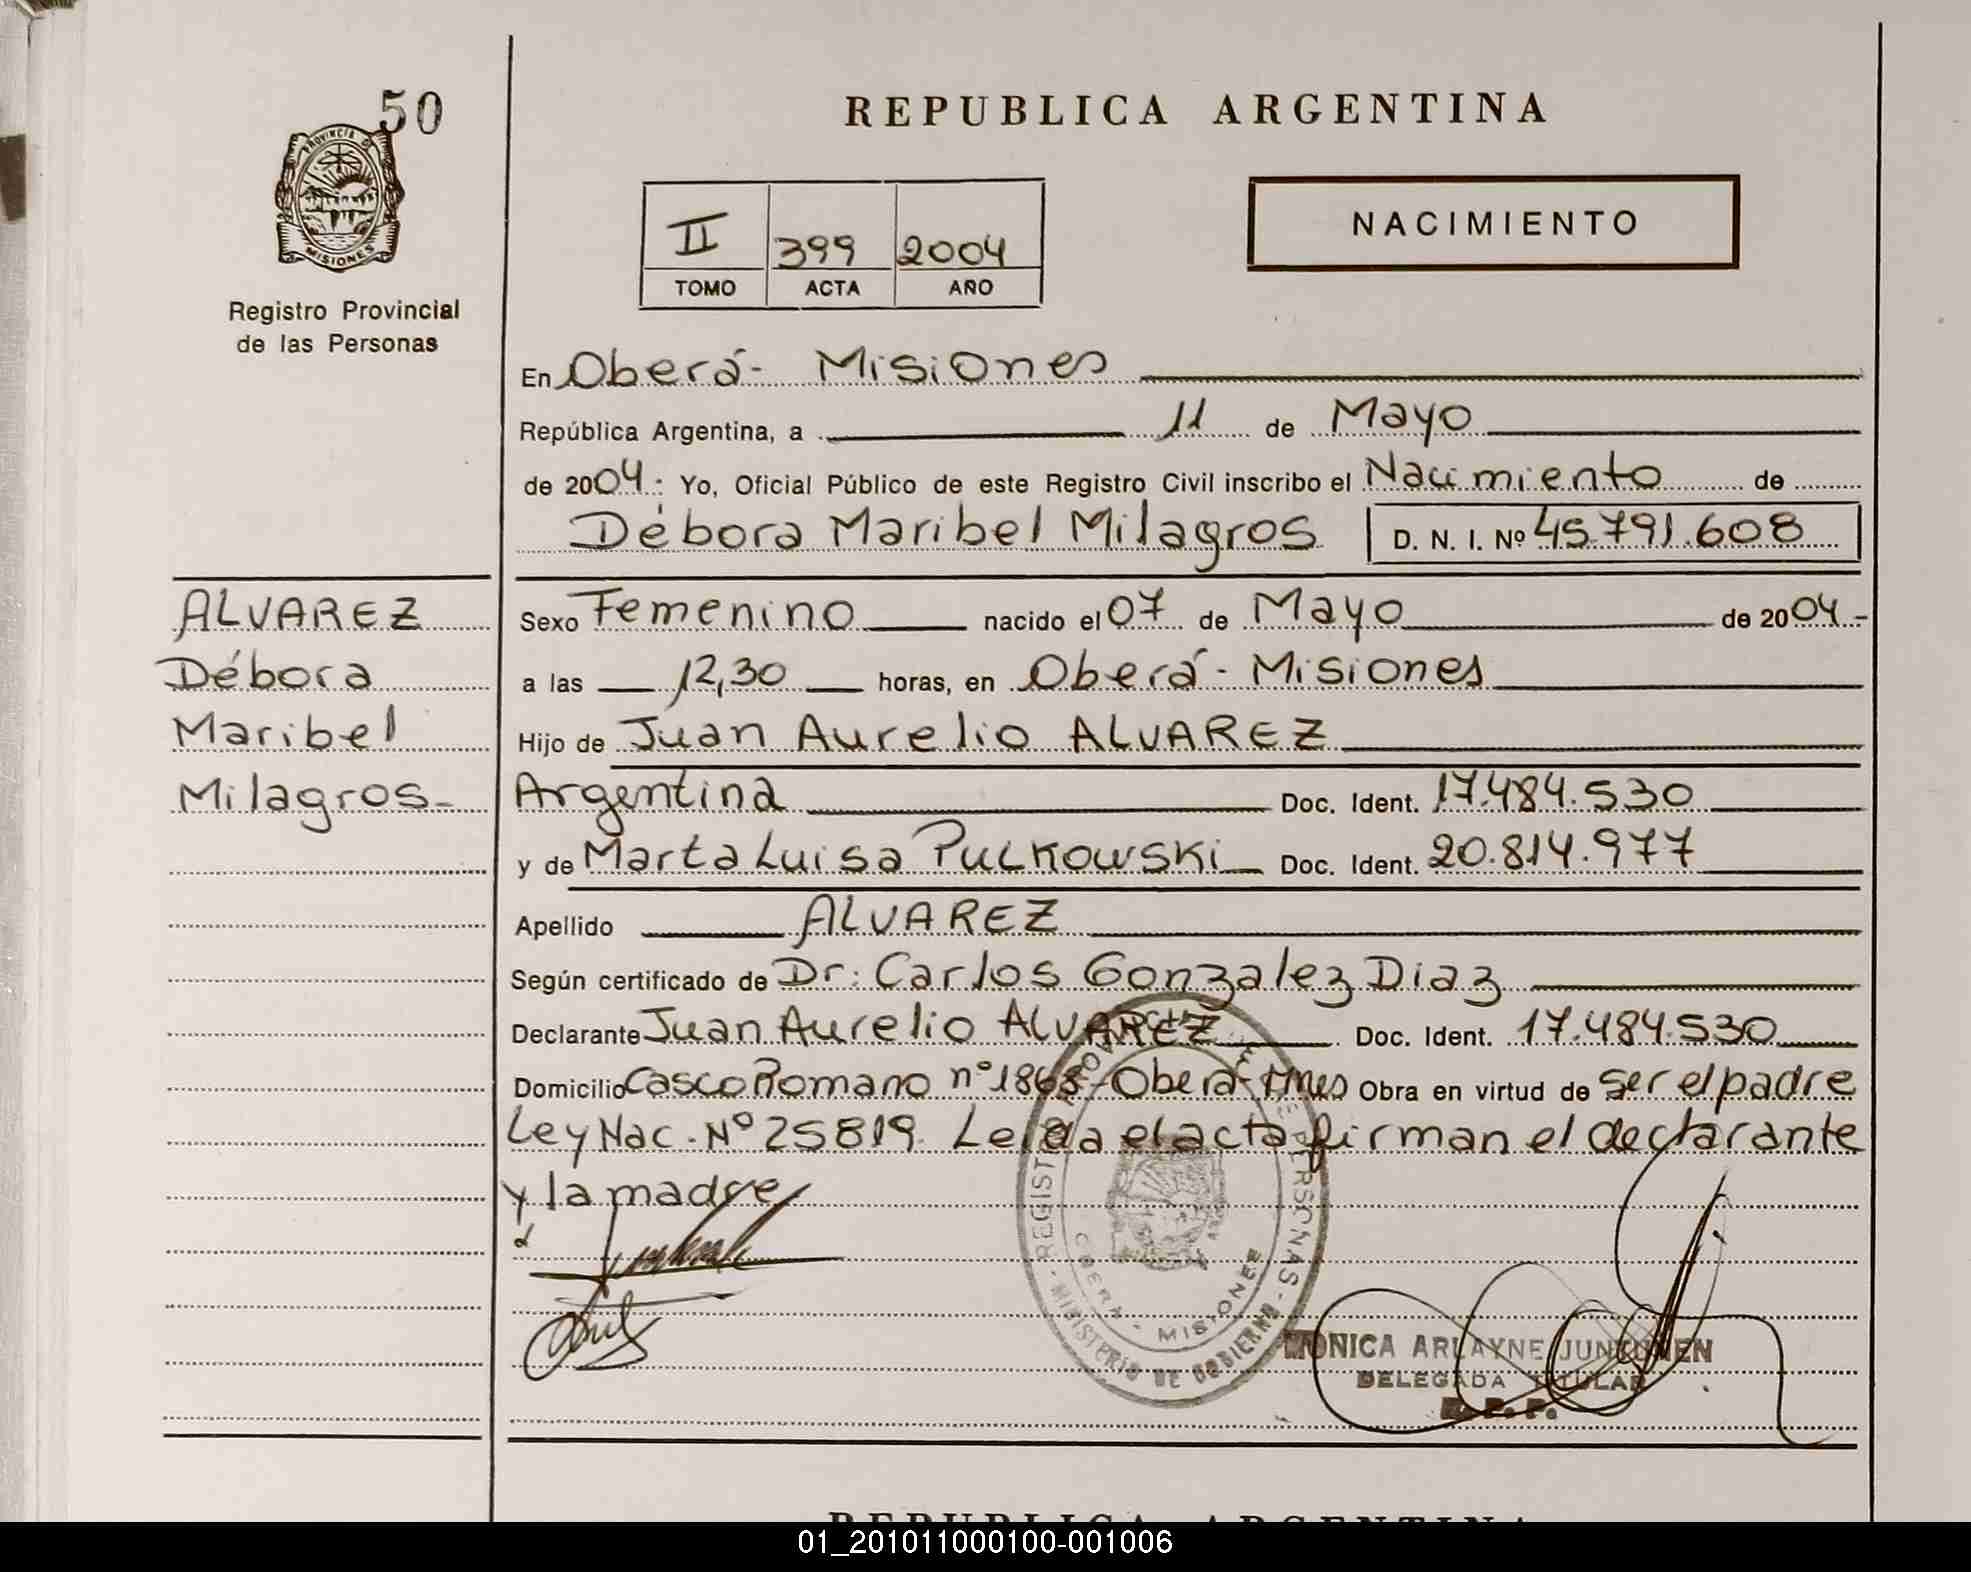 50
PROVINCIA DE
MISIONES
Registro Provincial
de las Personas
REPUBLICA ARGENTINA
II 399 2004
TOMO ACTA AÑO
NACIMIENTO
En Oberá - Misiones
República Argentina, a 11 de Mayo
de 2004.- Yo, Oficial Público de este Registro Civil inscribo el Nacimiento de
Débora Maribel Milagros D. N. I. Nº 45.791.608
ALVAREZ
Débora
Maribel
Milagros-
Sexo Femenino nacido el 07 de Mayo de 2004.-
a las 12,30 horas, en Oberá - Misiones
Hijo de Juan Aurelio ALVAREZ
Argentina Doc. Ident. 17.484.530
y de Marta Luisa PULKOWSKI Doc. Ident. 20.814.977
Apellido ALVAREZ
Según certificado de Dr: Carlos Gonzalez Diaz
Declarante Juan Aurelio ALVAREZ Doc. Ident. 17.484.530
Domicilio Casco Romano nº 1868 - Oberá - Mnes Obra en virtud de ser el padre
Ley Nac. Nº 25819. Leida el acta firman el declarante
y la madre
REGISTRO PROVINCIAL DE LAS PERSONAS - MINISTERIO DE GOBIERNO -
OBERA - MISIONES
MONICA ARLAYNE JUNTUNEN
DELEGADA TITULAR
R. P. P.
REPUBLICA ARGENTINA
01_201011000100-001006